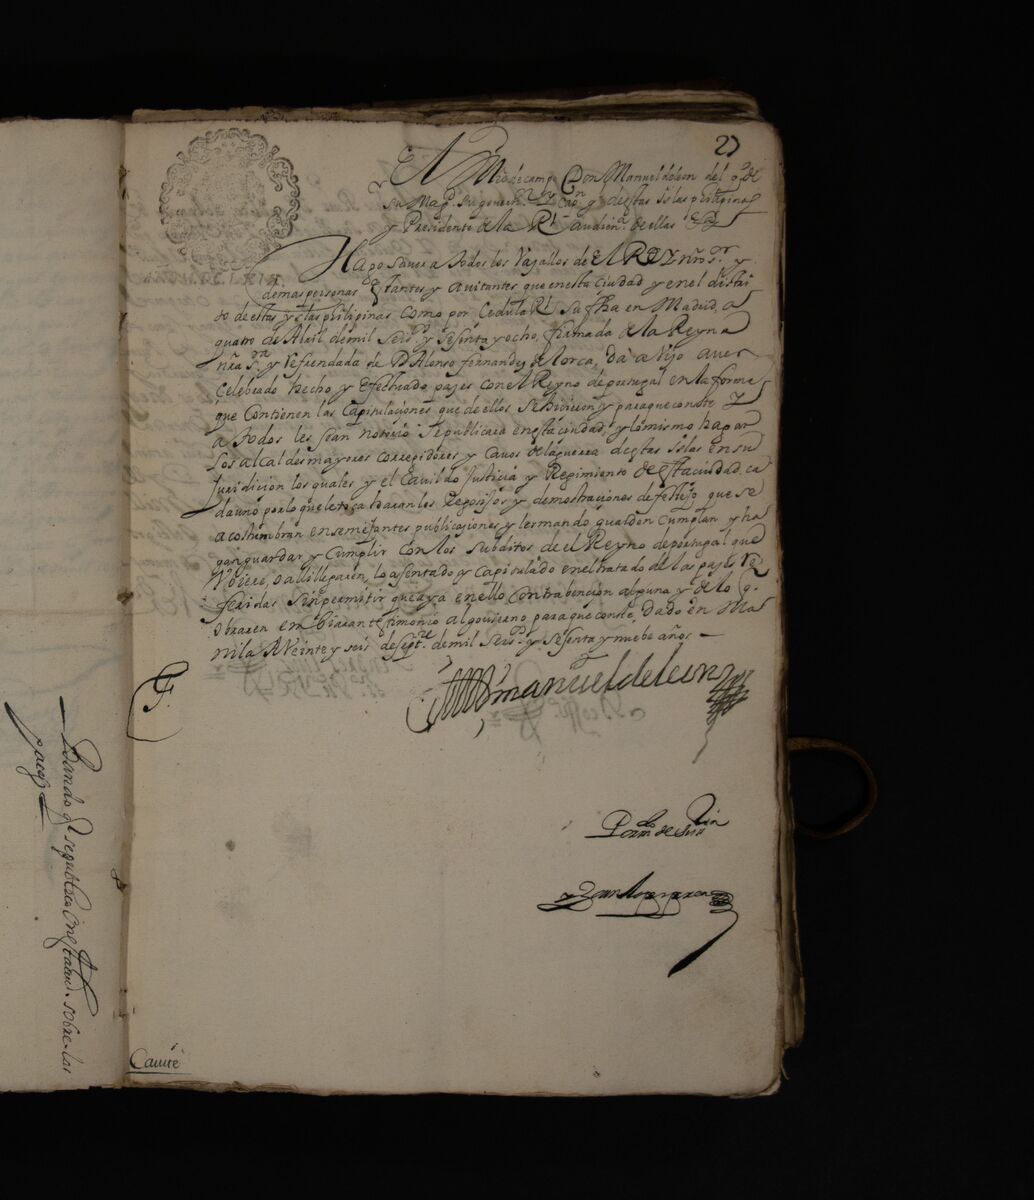 27
El M.º de campo Don Manuel de leon del q.º de
su Mag.d su governr. y Cap.n g.l destas Islas philipinas
y Presidente de la Rl. audien.ª de ellas &ª
Hago Saver a todos los Vasallos de El REY nro Sr. y
demas personas estantes y auitantes que en esta Ciudad y en el distri
to de estas yslas philipinas como por Cedula Rl. su fha en Madrid, a
quatro de Abril de mil Seisos. y sesenta y ocho, firmada de la Reyna
nra Sra. y Refrendada de D. Alonso fernandez de lorca, da a viso aver
Celebrado hecho y efectuado pazes con el Reyno de portugal en la forma
que Contienen las Capitulaciones que de ellos se hicieron y para que conste
a todos les sean notorio Se publicara en esta ciudad, y lo mismo hagan
los alcaldes mayores corregidores y Cauos de la guerra destas Islas en su
Juridicion los quales y el Cauildo Justicia y Regimiento de esta ciudad ca
da uno por lo que le toca haran los Regosijos y demostraciones de festejo que se
acostumbran en semejantes publicaciones y les mando guarden cumplan y ha
gan guardar y Cumplir con los subditos de el Reyno de portugal que
Vbiere, o alli llegaren, lo asentado y Capitulado en el tratado de las pazes Re
feridas sin permitir que aya en ello contrabencion alguna y de lo q.
obraren embiaran testimonio al gouierno para que conste, dado en Ma
nila A Veinte y seis de sept.e de mil Seisos. y sesenta y nuebe años —
Dn manuel de leon
Por m.do de su s.ria
Cauite
Bando q se publico en esta ciud. sobre las
paces